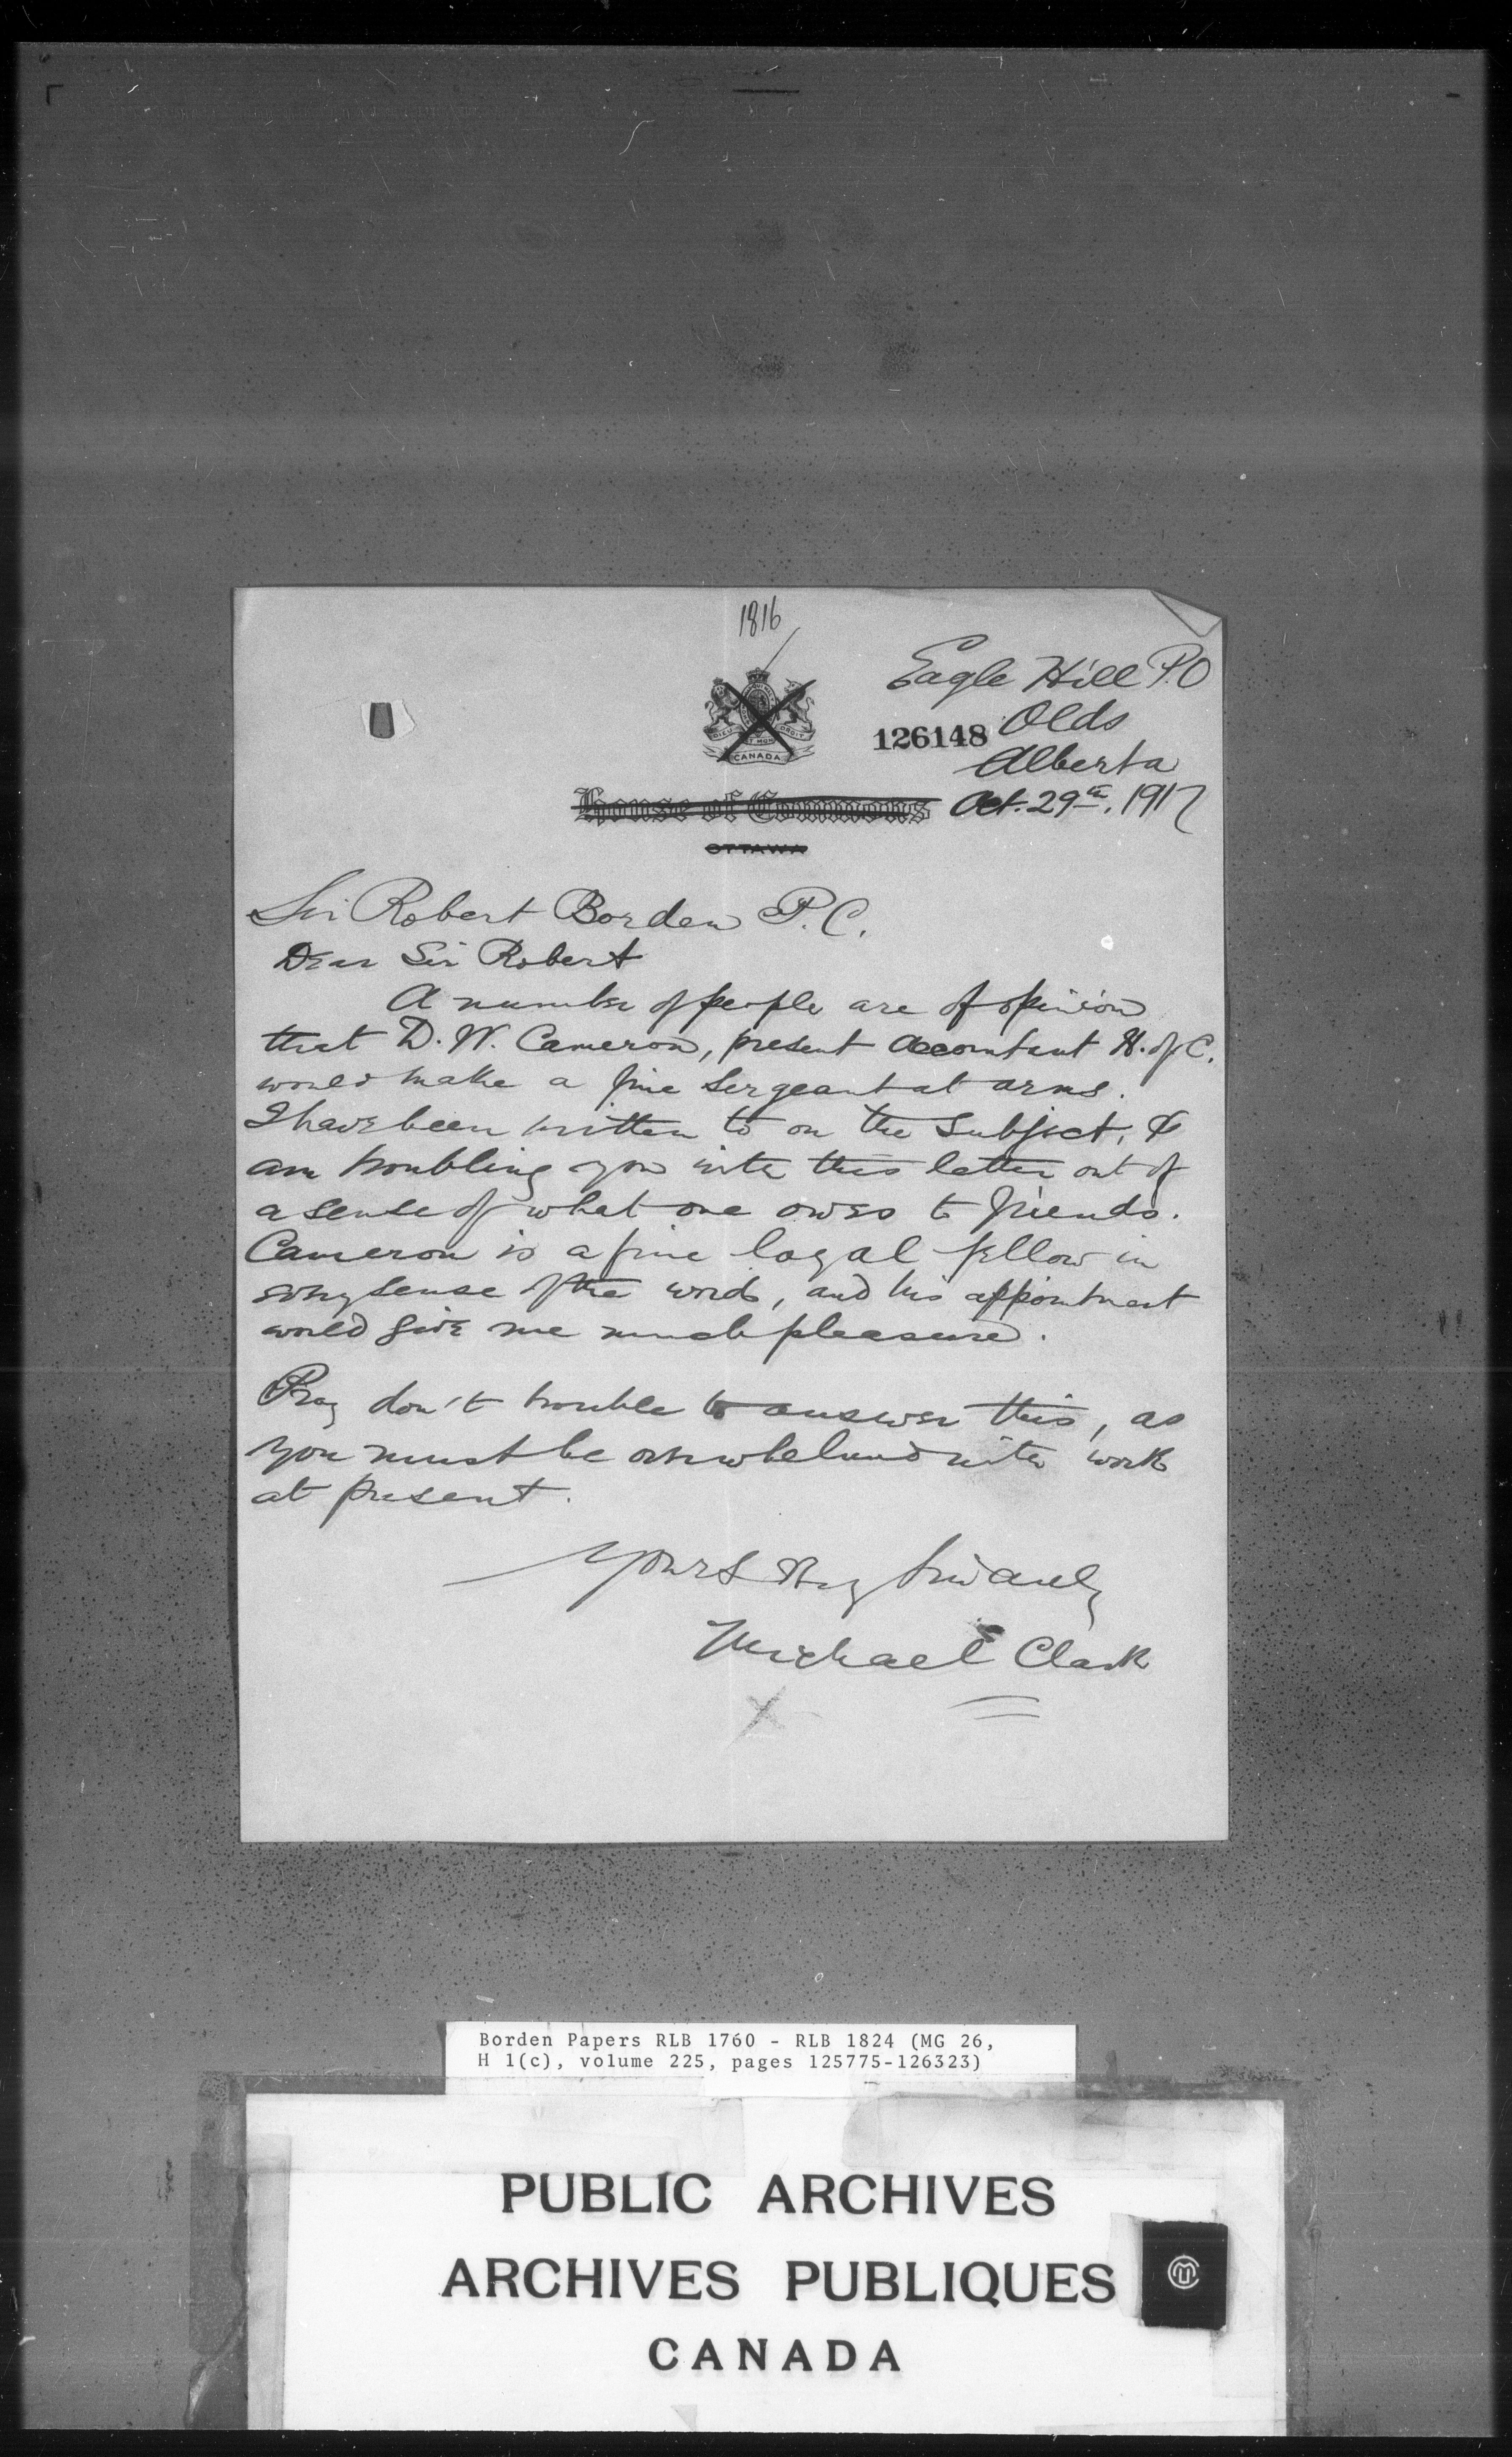 1816
Eagle Hill P.O
126148 Olds
Alberta
DIEU ET MON DROIT
CANADA
House of Commons Oct. 29th, 1917
OTTAWA
Sir Robert Borden P.C.
Dear Sir Robert
A number of people are of opinion
that D. W. Cameron, present accountant H. of C.
would make a fine Sergeant at arms.
I have been written to on the subject, &
am troubling you with this letter out of
a sense of what one owes to friends.
Cameron is a fine loyal fellow in
every sense of the words, and his appointment
would give me much pleasure.
Pray don't trouble to answer this, as
you must be overwhelmed with work
at present.
Yours very sincerely
Michael Clark
Borden Papers RLB 1760 - RLB 1824 (MG 26,
H 1(c), volume 225, pages 125775-126323)
PUBLIC ARCHIVES
ARCHIVES PUBLIQUES
CANADA